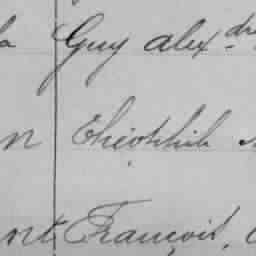 la Guy alex dre
n Théophile
ont François,